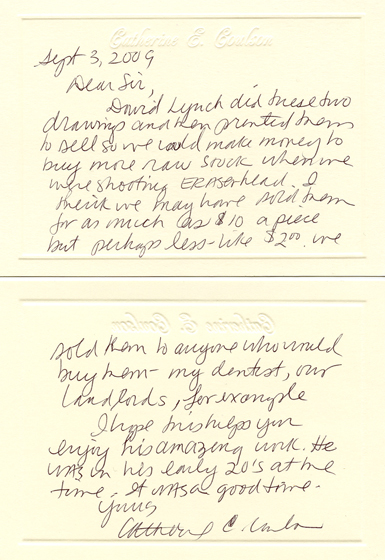 Catherine E. Coulson
Sept 3, 2009
Dear Sir,
David Lynch did these two
drawings and then printed them
to sell so we could make money to
buy more raw stock when we
were shooting ERASERhead. I
think we may have sold them
for as much as $10 a piece
but perhaps less-like $2.00. we
Catherine E. Coulson
sold them to anyone who would
buy them- my dentist, our
landlords, for example
I hope this helps you
enjoy his amazing work. He
was in his early 20's at the
time. It was a good time-
Yours
Catherine E. Coulson